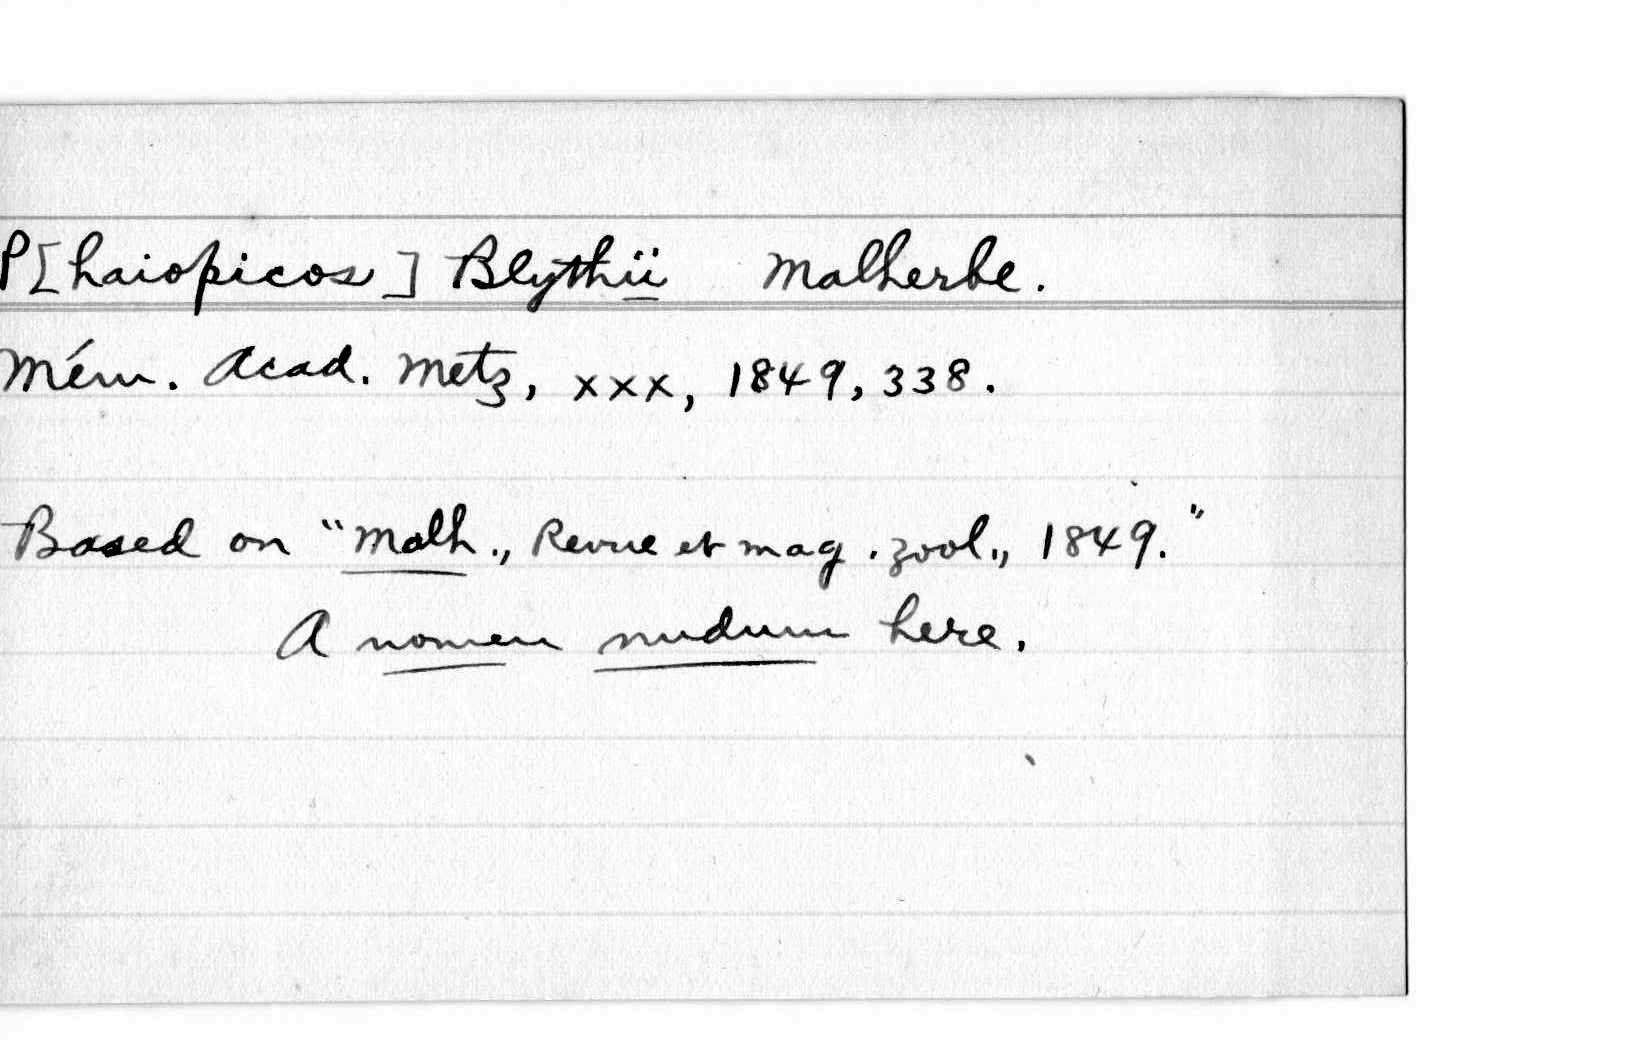 P[haiopicos] Blythii Malherbe.
Mém. Acad. Metz, xxx, 1849, 338.
Based on "Malh., Revue et mag. zool., 1849."
A nomen nudum here.